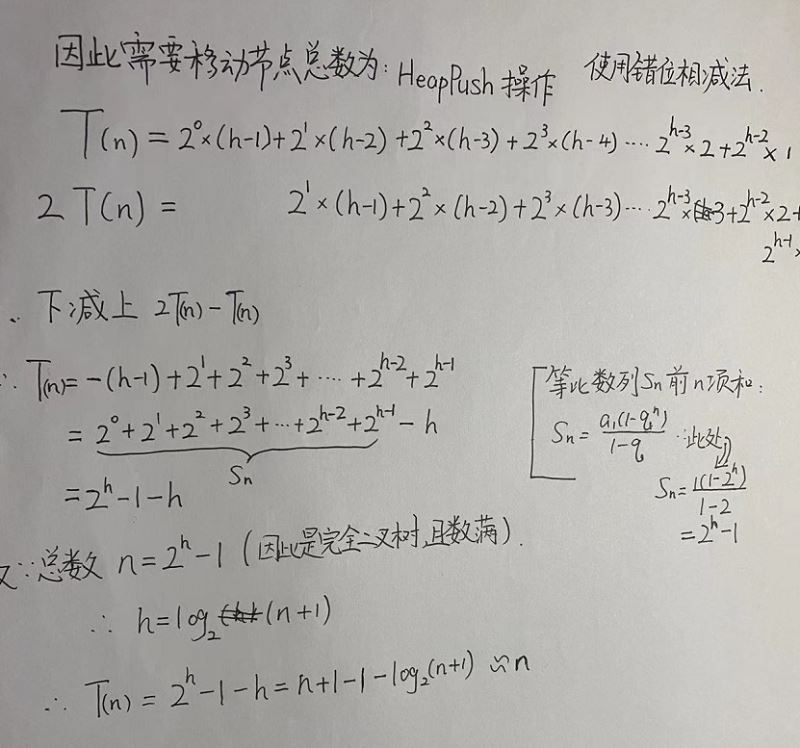 因此需要移动节点总数为: HeapPush 操作 使用错位相减法.
T(n) = 2⁰×(h-1)+2¹×(h-2)+2²×(h-3)+2³×(h-4)····2ʰ⁻³×2+2ʰ⁻²×1
2T(n) = 2¹×(h-1)+2²×(h-2)+2³×(h-3)····2ʰ⁻³×3+2ʰ⁻²×2+
2ʰ⁻¹×
下减上 2T(n)-T(n)
∴ T(n)=-(h-1)+2¹+2²+2³+····+2ʰ⁻²+2ʰ⁻¹
= 2⁰+2¹+2²+2³+···+2ʰ⁻²+2ʰ⁻¹-h
Sn
=2ʰ-1-h
等比数列Sn前n项和:
Sn=a₁(1-qⁿ)/1-q ∴此处
Sn=1(1-2ʰ)/1-2
=2ʰ-1
又∵总数 n=2ʰ-1 (因此是完全二叉树,且数满).
∴ h=log₂(n+1)
∴ T(n) = 2ʰ-1-h=n+1-1-log₂(n+1) ≈n